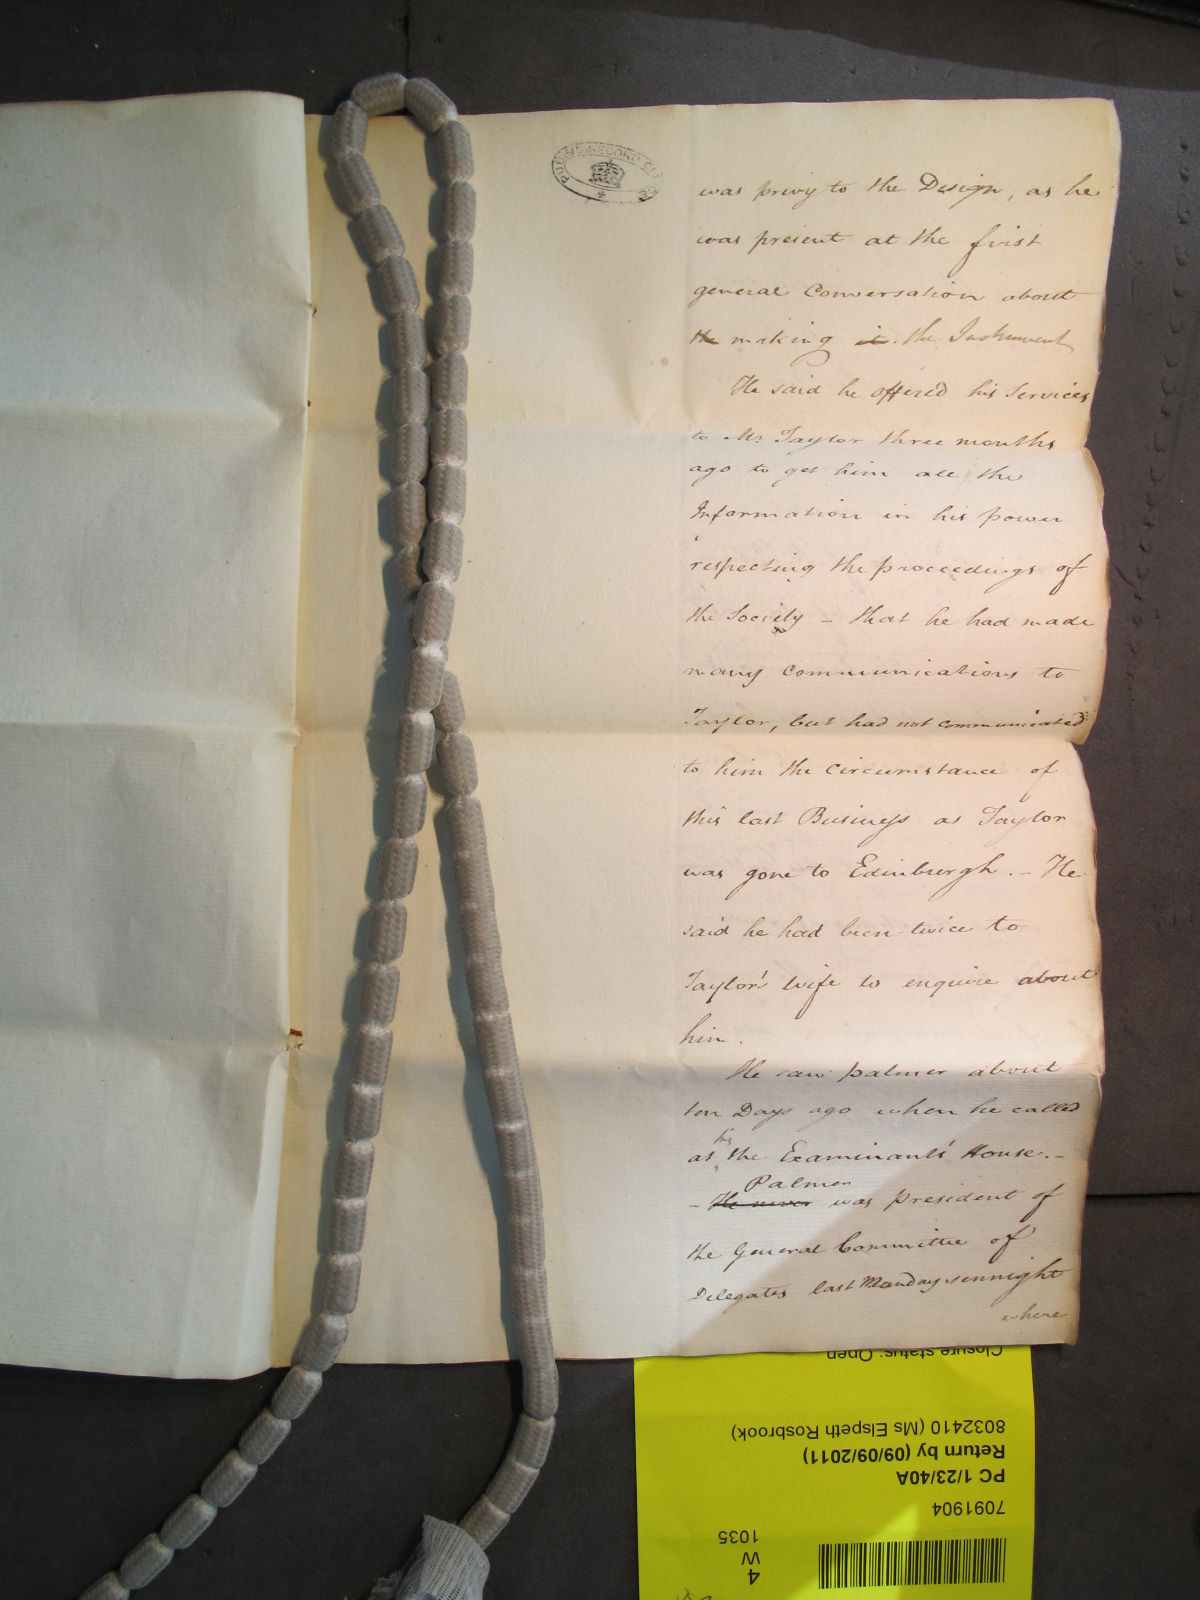 PUBLIC RECORD OFFICE
was privy to the Design, as he
was present at the first
general Conversation about
the making it. the Instrument
He said he offered his Services
to Mr Taylor three months
ago to get him all the
Information in his power
respecting the proceedings of
the Society – that he had made
many communications to
Taylor, but had not communicated
to him the circumstance of
this last Business as Taylor
was gone to Edinburgh. – He
said he had been twice to
Taylor's wife to enquire about
him.
He saw palmer about
ten Days ago when he called
his
at the Examinants' House. –
Palmer
– He never was president of
the General Committee of
Delegates last Monday sennight
where
Closure status: Open
8032410 (Ms Elspeth Rosbrook)
Return by (09/09/2011)
PC 1/23/40A
7091904
1035
W
4